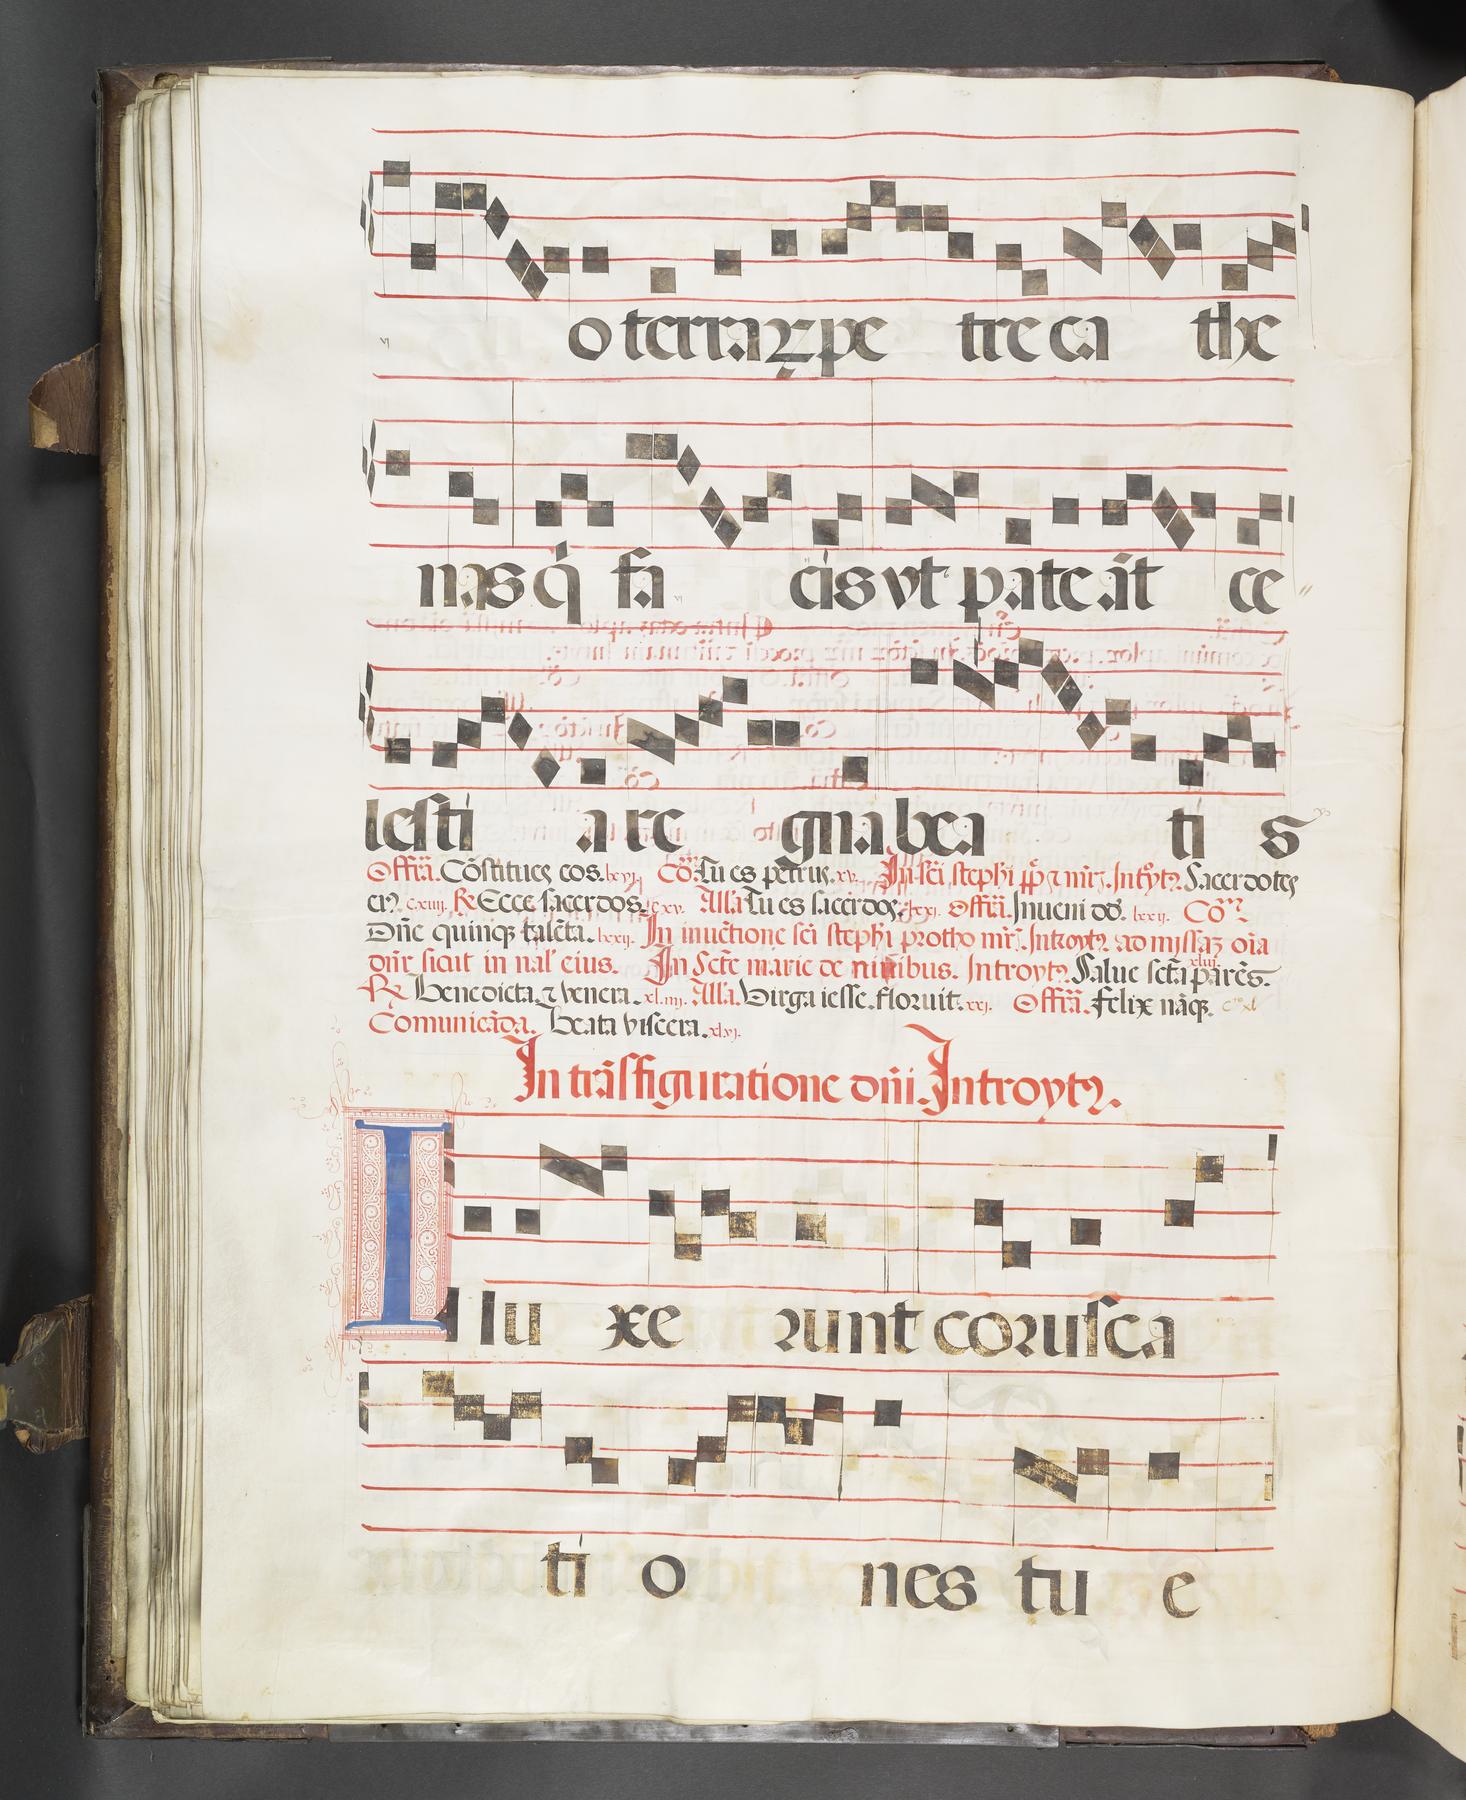 o terraꝝ pe tre ca the
nas q̇ fa cis vt pate āt ce
lesti a re gna bea ti s
Offiā. Cōstitues eos. lxvj. Cō. Tu es petrus. xv. In sci stephi pp̄ ⁊ mr̄. Introytꝰ. Sacerdotes
eiꝰ. cxiiij. ℟ Ecce sacerdos. cxv. Alla Tu es sacerdos. Offiā. Inueni dd̄. lxxij. Cō
Dn̄e quinqꝫ talēta. lxxij. In inuētione sci stephi protho mr̄. Introytꝰ. ad missaꝫ oīa
dn̄r sicut in nal' eius. In Scē̄ marie de niuibus. Introytꝰ. Salue scta parēs. xliij.
℟ Benedicta ⁊ venera. xl.iiij. Alla. Virga iesse. floruit. xxj. Offiā. Felix nāqꝫ.
Comunicāda. Beata viscera. xlvj.
In trāsfiguratione dn̄i. Introytꝰ.
I llu xe runt corusca
ti o nes tu e